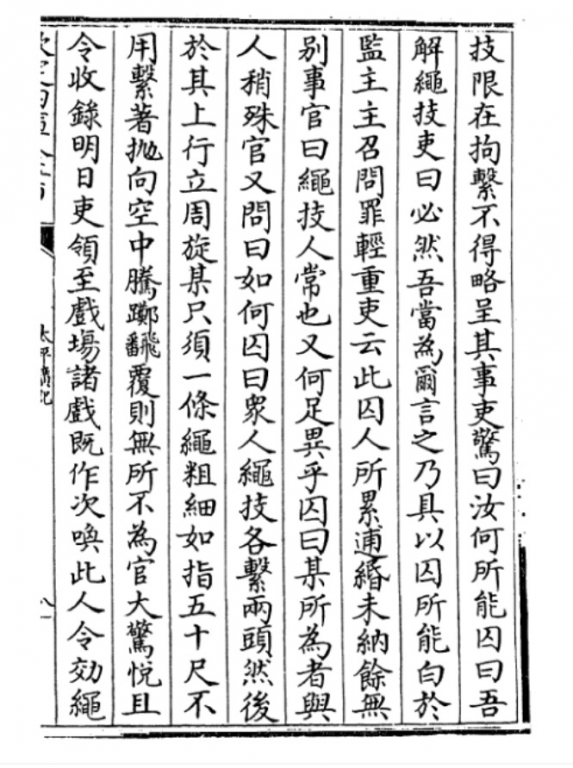 技限在拘繫不得略呈其事吏驚曰汝何所能囚曰吾
解繩技吏曰必然吾當為爾言之乃具以囚所能白於
監主主召問罪輕重吏云此囚人所累逋緡未納餘無
别事官曰繩技人常也又何足異乎囚曰某所為者與
人稍殊官又問曰如何囚曰衆人繩技各繫兩頭然後
於其上行立周旋某只須一條繩粗細如指五十尺不
用繫著抛向空中騰躑飜覆則無所不為官大驚悦且
令收錄明日吏領至戲場諸戲既作次喚此人令効繩
太平廣記
八